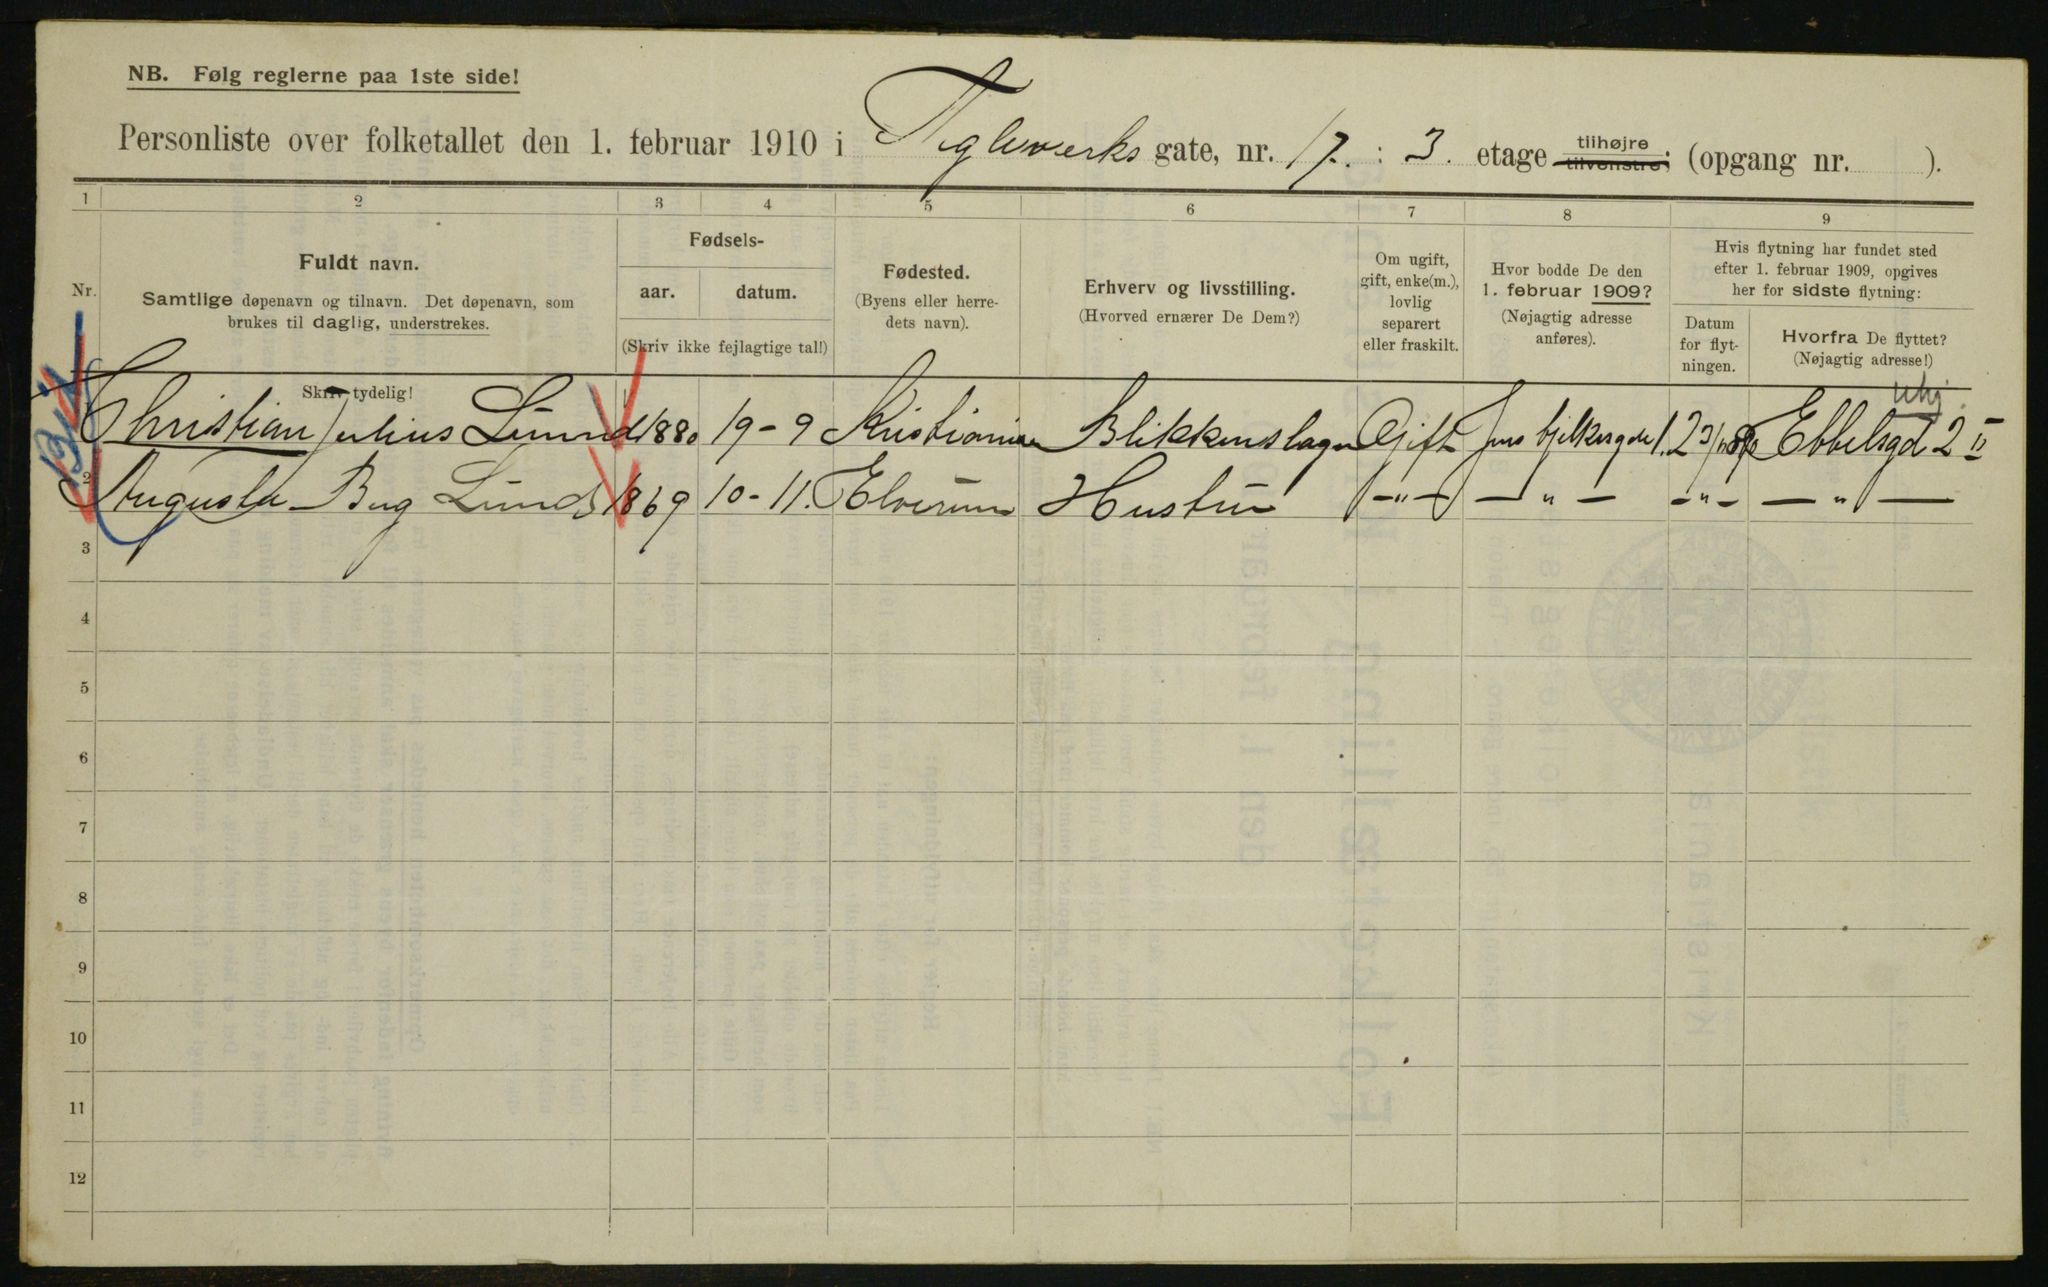 NB. Følg reglerne paa 1ste side!
Personliste over folketallet den 1. februar 1910 i Teglverks gate, nr. 17. : 3. etage tilhøjre tilvenstre; (opgang nr. ).
1 2 3 4 5 6 7 8 9
Nr.
Fuldt navn.
Samtlige døpenavn og tilnavn. Det døpenavn, som
brukes til daglig, understrekes.
Skriv tydelig!
Fødsels-
aar. datum.
(Skriv ikke fejlagtige tal!)
Fødested.
(Byens eller herre-
dets navn).
Erhverv og livsstilling.
(Hvorved ernærer De Dem?)
Om ugift,
gift, enke(m.),
lovlig
separert
eller fraskilt.
Hvor bodde De den
1. februar 1909?
(Nøjagtig adresse
anføres).
Hvis flytning har fundet sted
efter 1. februar 1909, opgives
her for sidste flytning:
Datum
for flyt-
ningen.
Hvorfra De flyttet?
(Nøjagtig adresse!)
Christian Julius Lund 1880 19-9 Kristiania Blikkenslager Gift Jens bjelkesgade 1. Ebbelsgd 2 II
2 Augusta Lund 1869 10-11. Elverum Hustru -"- -"- -"- -"-
3
4
5
6
7
8
9
10
11
12